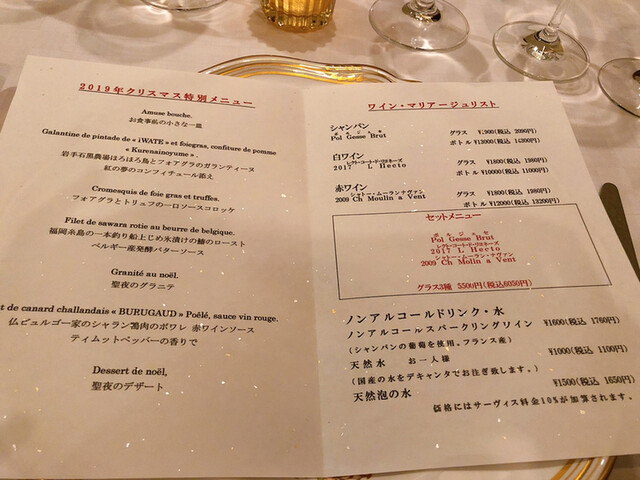 2019年クリスマス特別メニュー
Amuse bouche.
お食事前の小さな一皿
Galantine de pintade de « iWATE » et foiegras, confiture de pomme
« Kurenainoyume » .
岩手石黒農場ほろほろ鳥とフォアグラのガランティーヌ
紅の夢のコンフィチュール添え
Cromesquis de foie gras et truffes.
フォアグラとトリュフの一口ソースコロッケ
Filet de sawara rotie au beurre de belgique.
福岡糸島の一本釣り船上じめ氷漬けの鰆のロースト
ベルギー産発酵バターソース
Granité au noël.
聖夜のグラニテ
t de canard challandais « BURUGAUD » Poêlé, sauce vin rouge.
仏ビュルゴー家のシャラン鴨肉のポワレ 赤ワインソース
ティムットペッパーの香りで
Dessert de noël,
聖夜のデザート
ワイン・マリアージュリスト
シャンパン
ポルジェセ
Pol Gesse Brut
グラス ¥1900(税込 2090円)
ボトル ¥12000(税込 13200円)
白ワイン
レクト・コート・ド・リヨネーズ
2017 L Hecto
グラス ¥1800(税込 1980円)
ボトル ¥10000(税込 11000円)
赤ワイン
シャトー・ムーランナヴァン
2009 Ch Moulin a Vent
グラス ¥1800(税込 1980円)
ボトル ¥12000(税込 13200円)
セットメニュー
Pol Gesse Brut
2017 L Hecto
シャトー・ムーラン・ナヴァン
2009 Ch Moulin a Vent
グラス3種 5500円(税込6050円)
ノンアルコールドリンク・水
ノンアルコールスパークリングワイン ¥1600(税込 1760円)
(シャンパンの葡萄を使用。フランス産)
天然水 お一人様 ¥1000(税込 1100円)
(国産の水をデキャンタでお注ぎ致します。)
天然泡の水 ¥1500(税込 1650円)
価格にはサーヴィス料金10%が加算されます。